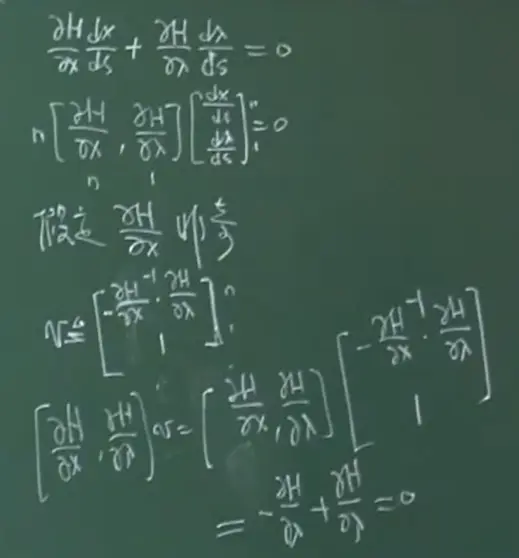 ∂H/∂x dx/ds + ∂H/∂λ dλ/ds = 0
n [∂H/∂x , ∂H/∂λ] [dx/ds dλ/ds] n 1 = 0
n 1
假定 ∂H/∂x 可逆
v ≜ [-∂H/∂x⁻¹ · ∂H/∂λ 1] n 1
[∂H/∂x , ∂H/∂λ] v = [∂H/∂x , ∂H/∂λ] [-∂H/∂x⁻¹ · ∂H/∂λ 1]
= -∂H/∂λ + ∂H/∂λ = 0